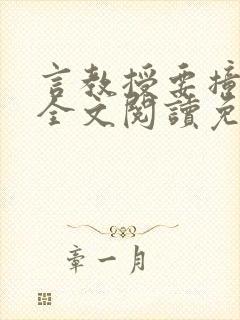 言教授要撞
全文閱讀免
章一月